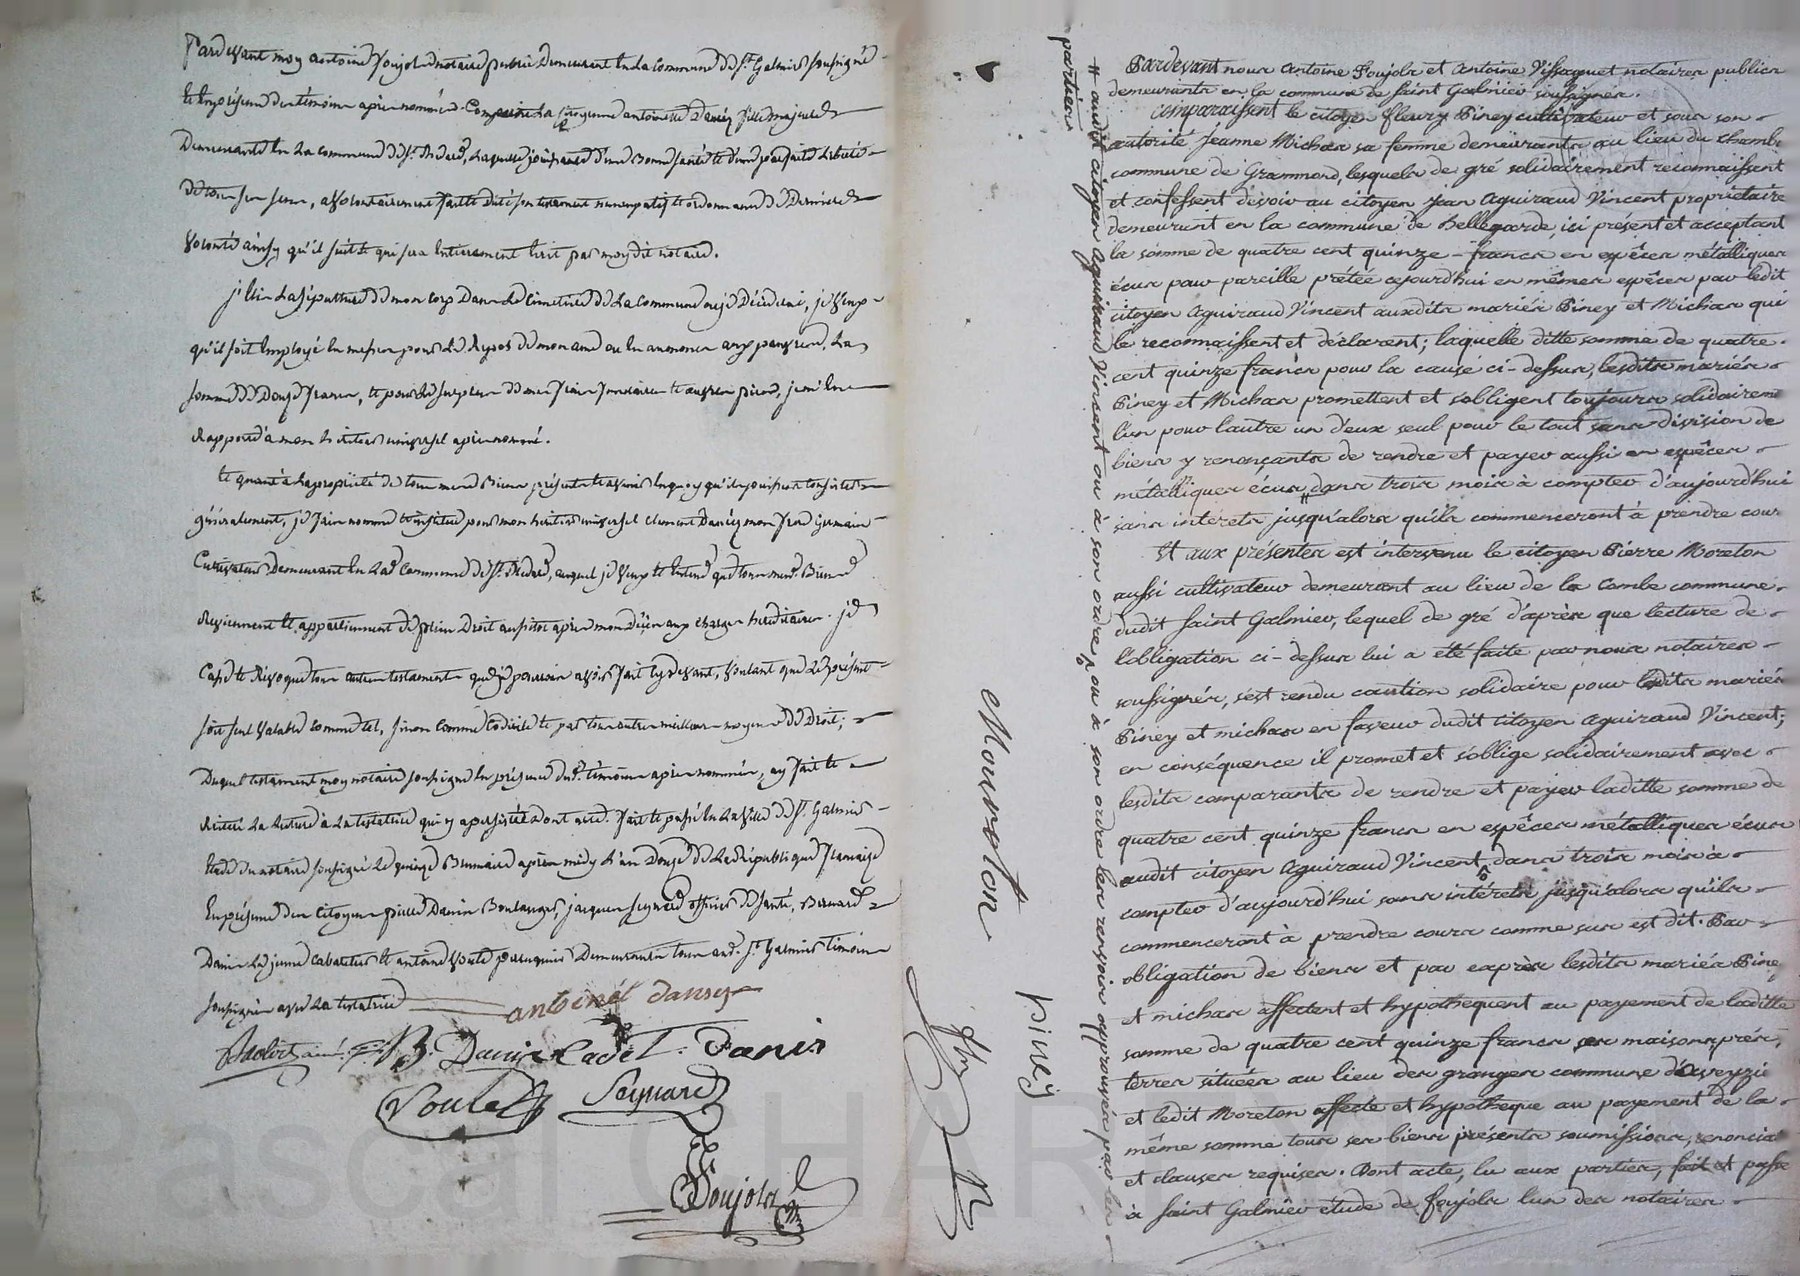 Pardevant moy antoine Poujols notaire public demeurant en la commune de St Galmier soussigné
et en présence des témoins après nommés Comparait la citoyenne antoinette Dancy fille majeure
Demeurante en la commune de St Médard, laquelle jouissante d'une bonne santé et d'une parfaite liberté
de tous ses sens, a volontairement fait et dicté son testament nuncupatif et ordonnance de dernière
volonté ainsy qu'il suit et qui sera entierement écrit par moy dit notaire.
j'élis la sépulture de mon corp dans le cimetière de la commune où je décederai, je veux
qu'il soit employé en messes pour le repos de mon ame ou en aumones aux pauvres, la
somme de Douze francs, et pour le surplus de mes frais funéraires et autres pieux, je m'en
rapporte à mon héritier universel après nommé.
et quant à la propriété de tous mes biens présents et avenir en quoy qu'ils puissent consister
généralement, je fais nomme et institue pour mon héritier universel Clement Dancy mon frere germain
Cultivateur demeurant en lade commune de St Médard, auquel je veux et entend que tous mesd. Biens
reviennent et appartiennent de plein Droit aussitot après mon décès aux charges héréditaires. je
casse et révoque tous autres testaments que je pourrois avoir fait cy devant, voulant que le présent
soit seul valable comme tel, sinon comme codicile et par tous autres meilleurs moyens de Droit;
Duquel testament moy notaire soussigné en présence desd. témoins après nommés, ay fait et
réitéré la lecture à la testatrice qui y a persisté dont acte. fait et passé en la ville de St Galmier
étude du notaire soussigné le quinze Brumaire après midy l'an Douze de la République française
En présence des citoyens pierre Danis Boulanger, jacques Seignard officier de santé, Bernard
Danis le jeune cabaretier et antoine Voulé perruquier Demeurants tous aud. St Galmier témoins
soussignés avec la testatrice
antoinét dansy
B. Danis Cadet. Danis
Voulé Seignard
Poujols
Mourelon
piney
# audit citoyen Aguiraud Vincent ou à son ordre, ou à son ordre les renvois approuvés par les
parties
Pardevant nous Antoine Poujols et Antoine Vissaguet notaires publics
demeurants en la commune de Saint Galmier soussignés.
Comparaissent le citoyen fleury Piney cultivateur et sous son
autorité Jeanne Michas sa femme demeurants au lieu du Chambe
commune de Grammond, lesquels de gré solidairement reconnaissent
et confessent devoir au citoyen Jean Aguiraud Vincent propriétaire
demeurant en la commune de Bellegarde, ici présent et acceptant
la somme de quatre cent quinze francs en espèces métalliques
écus pour pareille prêtée cejourd'hui en mêmes espèces par ledit
citoyen Aguiraud Vincent auxdits mariés Piney et Michas qui
le reconnaissent et déclarent; laquelle ditte somme de quatre
cent quinze francs pour la cause ci-dessus, lesdits mariés
Piney et Michas promettent et s'obligent toujours solidairemt
l'un pour l'autre un d'eux seul pour le tout sans division de
biens y renonçants de rendre et payer aussi en espèces
métalliques écus # dans trois mois à compter d'aujourd'hui
sans intérêts jusqu'alors qu'ils commenceront à prendre cour
Et aux présentes est intervenu le citoyen Pierre Moreton
aussi cultivateur demeurant au lieu de la Combe commune
dudit Saint Galmier, lequel de gré d'après que lecture de
l'obligation ci-dessus lui a été faite par nous notaires
soussignés, s'est rendu caution solidaire pour lesdits mariés
Piney et michas en faveur dudit Citoyen Aguiraud Vincent;
en conséquence il promet et s'oblige solidairement avec
lesdits comparants de rendre et payer laditte somme de
quatre cent quinze francs en espèces métalliques écus
audit citoyen Aguiraud Vincent, dans trois mois à
compter d'aujourd'hui sans intérêts jusqu'alors qu'ils
commenceront à prendre cours comme sus est dit. Par
obligation de biens et par exprès lesdits mariés Piney
et michas affectent et hypothequent au payement de laditte
somme de quatre cent quinze francs ses maisons, prés,
terres situées au lieu des granges commune d'Aveyzie
et ledit Moreton affecte et hypothèque au payement de la
même somme tous ses biens présents soumissions, renonciat
et clauses requises. Dont acte, lu aux parties, fait et passé
à Saint Galmier étude de Poujols l'un des notaires
Pascal CHAR